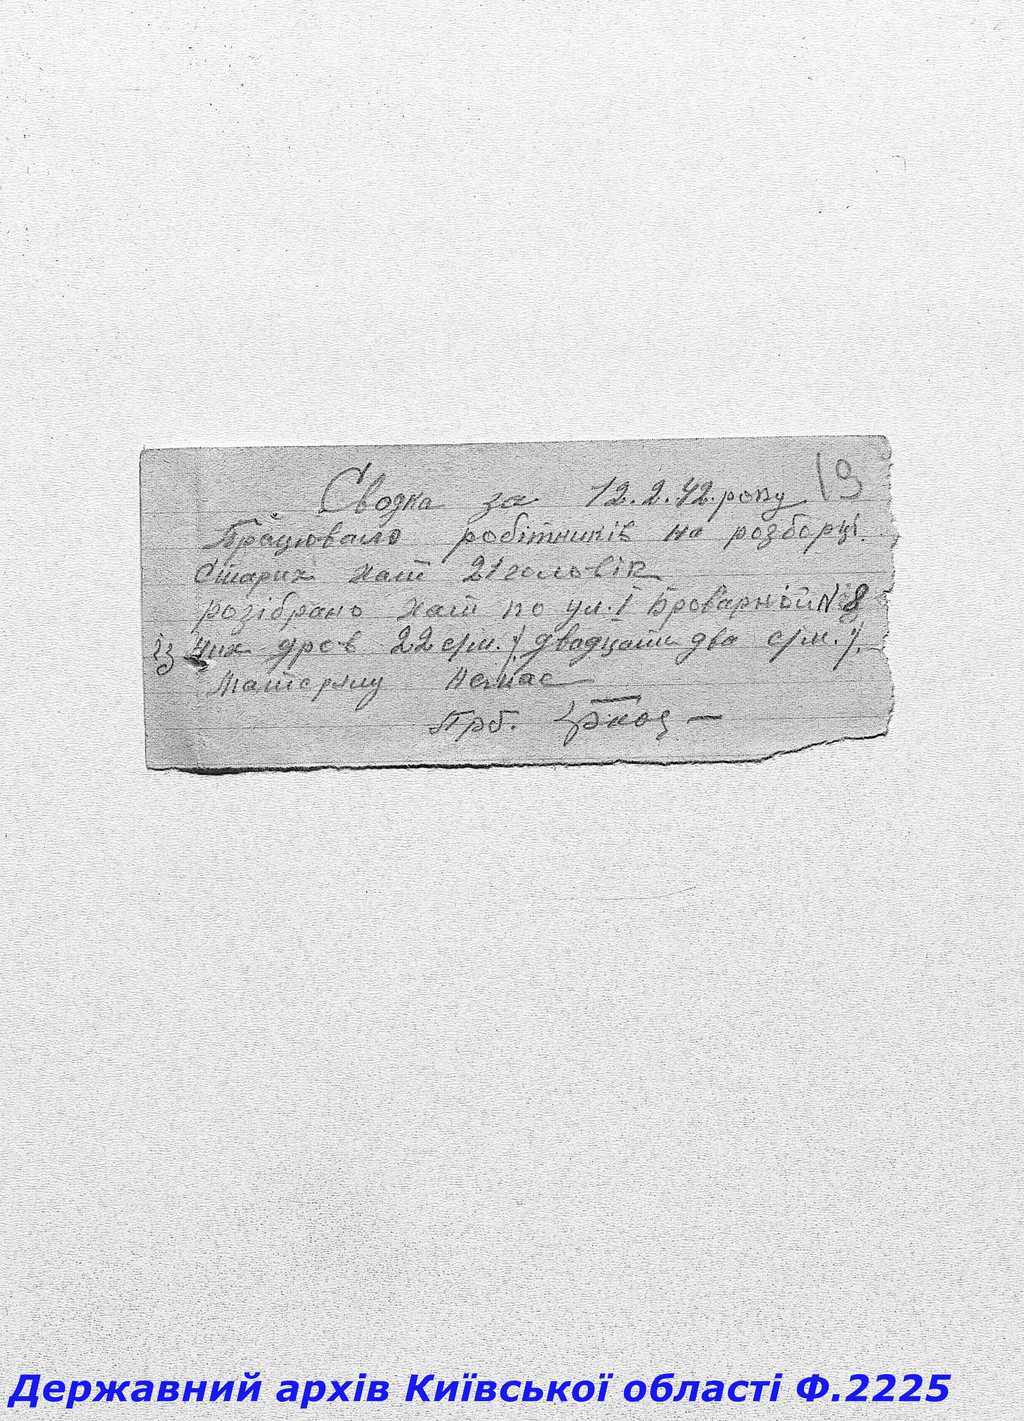 19
Сводка за 12.2.42. року
Працювало робітників на розборці
Старих хат 21 головік
розібрано хат по ул. I Броварной № 8
із них дров 22 с/м. /двадцати два с/м./.
Матерялу Немає
Прб.
Державний архів Київської області Ф.2225